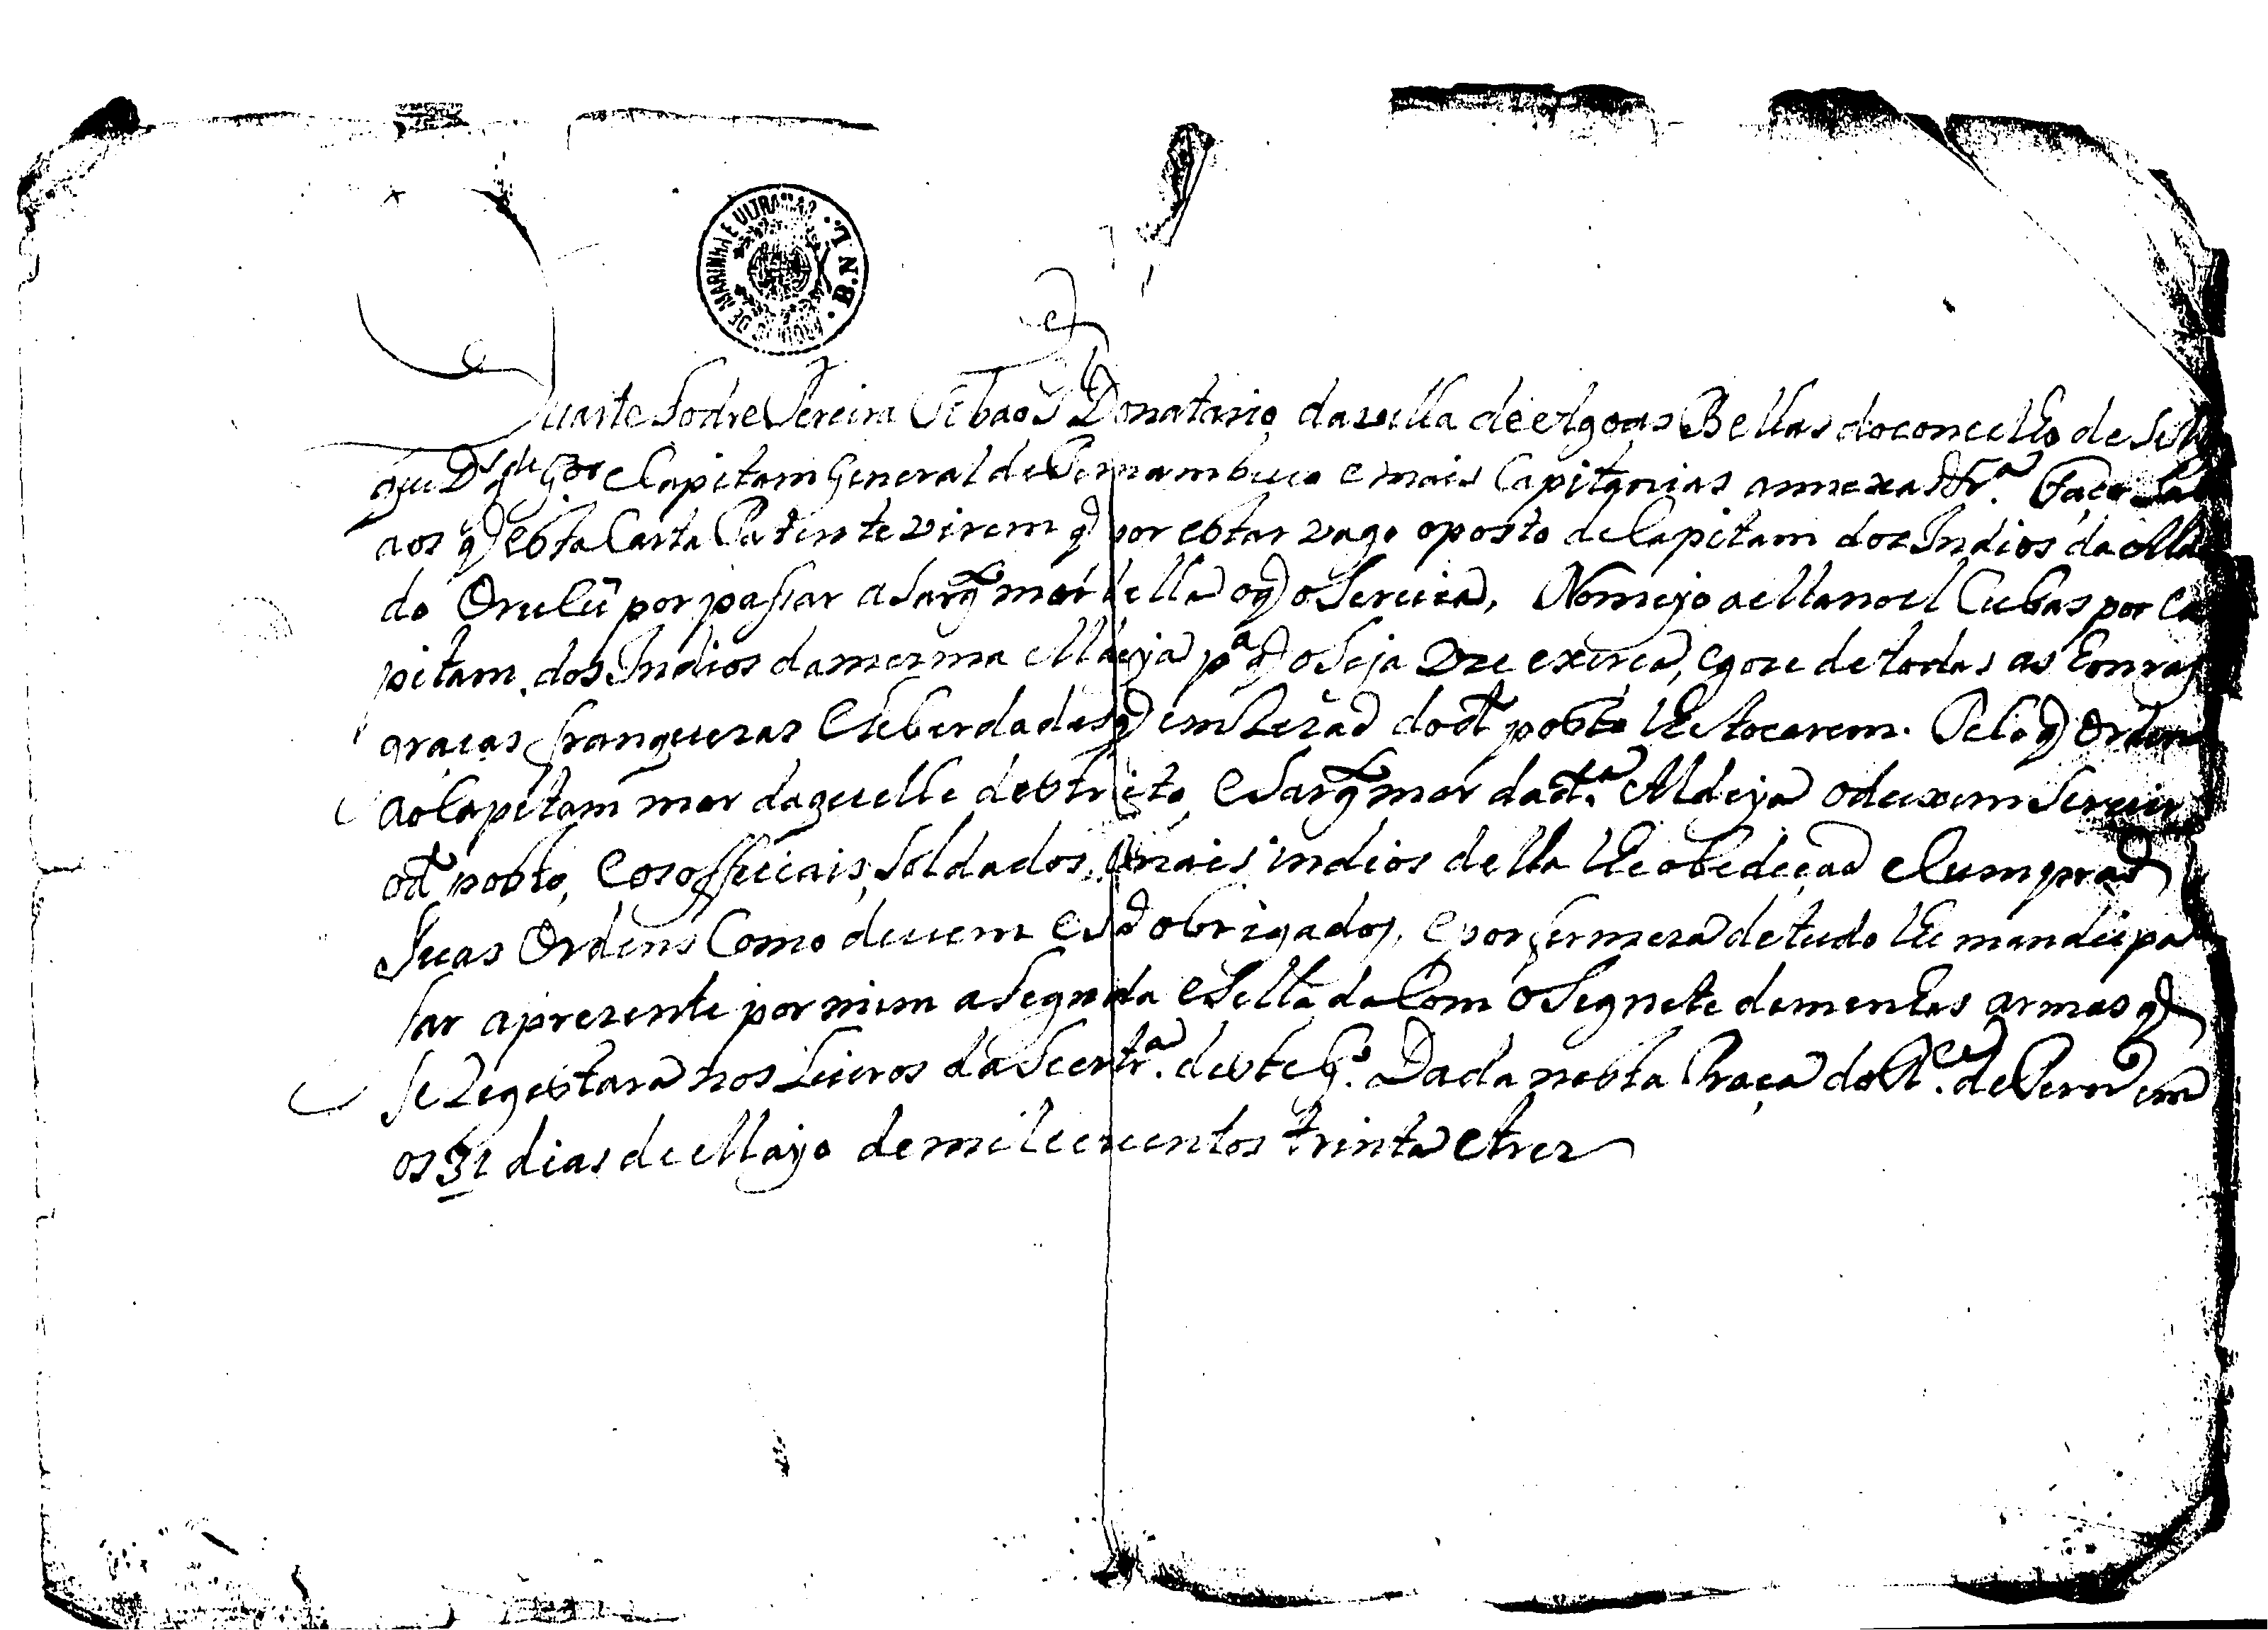 ARQUIVO DE MARINHA E ULTRAMAR . B. N. L.
Duarte Sodre Pereira Tibaõ Donatario da villa de Agoas Bellas do concelho de
que Ds gde Gor e Capitam General de Pernambuco e mais Capitanias annexas &ra. Faço Sab
aos q esta Carta Patente virem q por estar vago o posto de Capitam dos Indios da Alde
do Orulû por passar a Sargto mor della o q o servia, Nomeyo a Manoel Cubas por Ca
pitam dos Indios da mesma Aldeya pa q o Seja Vze exerca, e goze de todas as honras
graças franquezas e liberdades q em Rezaõ do dto posto lhe tocarem. Pelo q Ordeno
ao Capitam mor daquelle destrito, e Sargto mor da dta Aldeya o deixem Servir
o dto posto, e os officiais, Soldados, e mais indios della lhe obedeçaõ e Cumpraõ
Suas Ordens Como devem e Saõ obrigados, e por firmeza de tudo lhe mandei pa
sar a prezente por mim asegnada e Sellada Com o Segnete de minhas armas q
se Registara nos Livros da Secrtra. deste Go. Dada nesta Praça do Re. de Pernco em
os 31 dias de Mayo de mil e trezentos trinta e trez